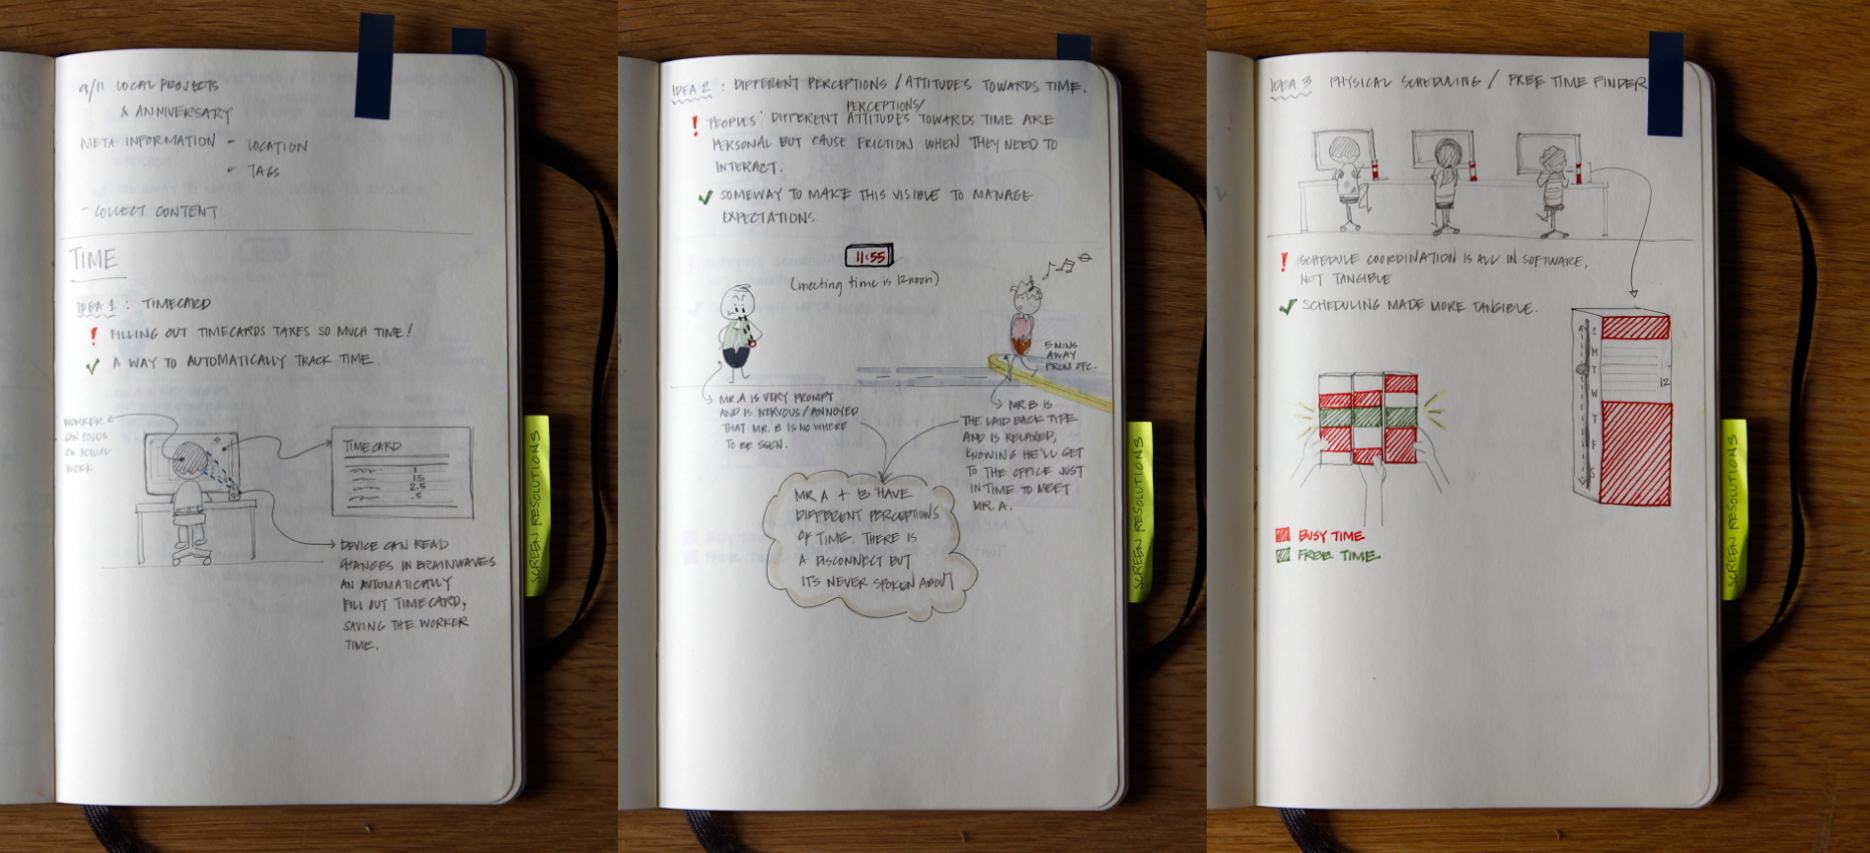 9/11 LOCAL PROJECTS
& ANNIVERSARY
META INFORMATION - LOCATION
- TAGS
- COLLECT CONTENT
TIME
IDEA 1 : TIMECARD
! FILLING OUT TIMECARDS TAKES SO MUCH TIME!
✓ A WAY TO AUTOMATICALLY TRACK TIME.
WORKER
CAN FOCUS
ON ACTUAL
WORK
TIMECARD
1
1.5
2.5
.5
DEVICE CAN READ
CHANGES IN BRAINWAVES
AN AUTOMATICALLY
FILL OUT TIMECARD,
SAVING THE WORKER
TIME.
SCREEN RESOLUTIONS
IDEA 2 : DIFFERENT PERCEPTIONS / ATTITUDES TOWARDS TIME.
PERCEPTIONS/
! PEOPLES' DIFFERENT ATTITUDES TOWARDS TIME ARE
PERSONAL BUT CAUSE FRICTION WHEN THEY NEED TO
INTERACT.
✓ SOMEWAY TO MAKE THIS VISIBLE TO MANAGE
EXPECTATIONS.
11:55
(meeting time is 12 noon)
5 MINS
AWAY
FROM OFC.
MR. A IS VERY PROMPT
AND IS NERVOUS/ANNOYED
THAT MR. B IS NO WHERE
TO BE SEEN.
MR B IS
THE LAID BACK TYPE
AND IS RELAXED,
KNOWING HE'LL GET
TO THE OFFICE JUST
IN TIME TO MEET
MR. A.
MR A + B HAVE
DIFFERENT PERCEPTIONS
OF TIME. THERE IS
A DISCONNECT BUT
ITS NEVER SPOKEN ABOUT
SCREEN RESOLUTIONS
IDEA 3 PHYSICAL SCHEDULING / FREE TIME FINDER
! SCHEDULE COORDINATION IS ALL IN SOFTWARE,
NOT TANGIBLE
✓ SCHEDULING MADE MORE TANGIBLE.
S
M
T
W
T
F
S
12
BUSY TIME
FREE TIME
SCREEN RESOLUTIONS